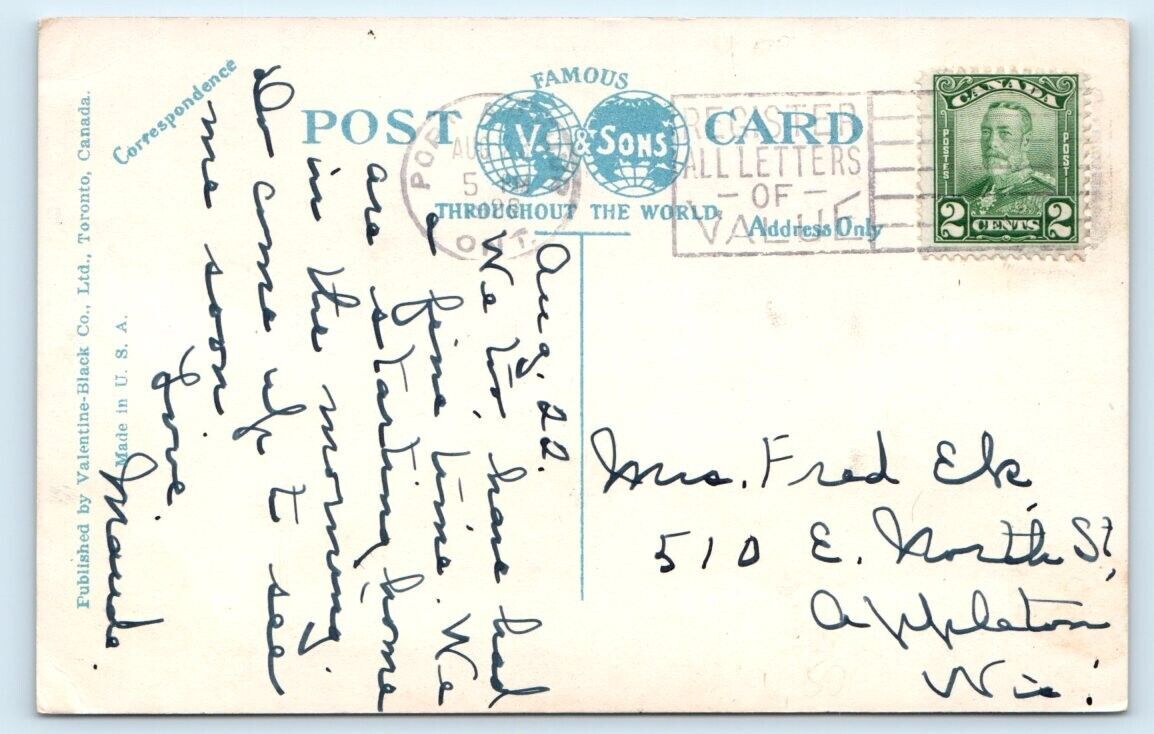 Correspondence
FAMOUS
POST CARD
V. & SONS
THROUGHOUT THE WORLD.
Address Only
REGISTER
ALL LETTERS
- OF -
VALUE
POR
AUG
5 PM
ONT.
CANADA
POSTES
POST
2 CENTS 2
Published by Valentine-Black Co., Ltd., Toronto, Canada.
Made in U. S. A.
Aug. 22.
We two have had
a fine time. We
are starting home
in the morning.
Do come up to see
me soon
Love
Maude.
Mrs. Fred Elk,
510 E. North St,
Appleton
Wis.